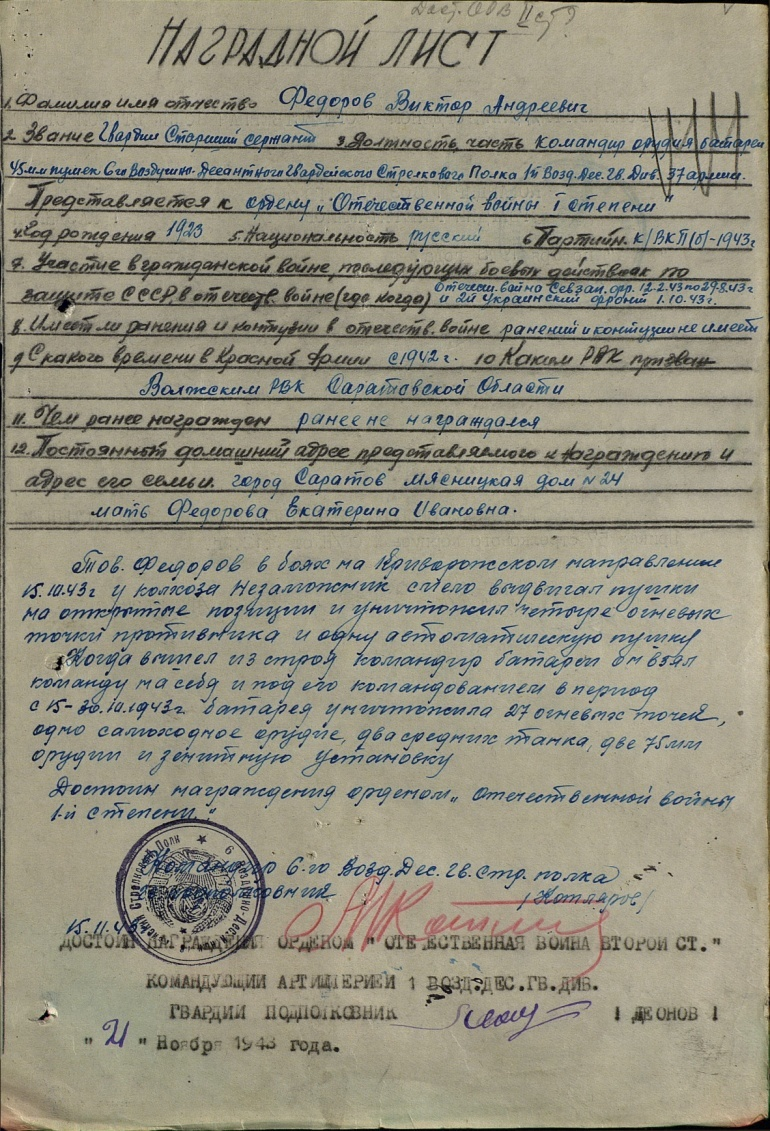 Дост. ОВ II ст?
НАГРАДНОЙ ЛИСТ
1. Фамилия имя отчество Федоров Виктор Андреевич
2. Звание Гвардии Старший сержант 3. Должность, часть командир орудия батареи
45мм пушек 6го Воздушно-Десантного Гвардейского Стрелкового Полка 1й Возд. Дес. Гв. Див. 37 армии.
Представляется к ордену „Отечественной войны I степени"
4. Год рождения 1923 5. Национальность русский 6. Партийн. К/ВКП(б)-1943г
7. Участие в гражданской войне, последующих боевых действиях по
защите СССР, в отечеств. войне (где когда) Отечеств. война Сев.зап. фр. 12.2.43 по 29.8.43г
и 2й Украинский фронт 1.10.43г.
8. Имеет ли ранения и контузии в отечеств. войне ранений и контузии не имеет
9. С какого времени в Красной Армии с 1942г. 10 Каким РВК призван
Волжским РВК Саратовской Области
11. Чем ранее награжден ранее не награждался
12. Постоянный домашний адрес представляемого к награждению и
адрес его семьи. город Саратов мясницкая дом №24
мать Федорова Екатерина Ивановна.
Тов. Федоров в боях на Криворожском направлении
15.10.43г у колхоза Незаможник смело выдвигал пушки
на открытые позиции и уничтожил четыре огневых
точки противника и одну автоматическую пушку
Когда вышел из строя командир батареи он взял
команду на себя и под его командованием в период
с 15-30.10.1943г батарея уничтожила 27 огневых точек,
одно самоходное орудие, два средних танка, две 75мм
орудии и зенитную установку
Достоин награждения орденом „Отечественной войны
1-й степени."
Командир 6-го Возд. Дес. Гв. Стр. полка
Гв. подполковник /Котляров/
15.11.43
ДОСТОИН НАГРАЖДЕНИЯ ОРДЕНОМ " ОТЕЧЕСТВЕННАЯ ВОЙНА ВТОРОЙ СТ."
КОМАНДУЮЩИЙ АРТИЛЛЕРИЕЙ 1 ВОЗД.ДЕС.ГВ.ДИВ.
ГВАРДИИ ПОДПОЛКОВНИК / ЛЕОНОВ /
" 21 " Ноября 1943 года.